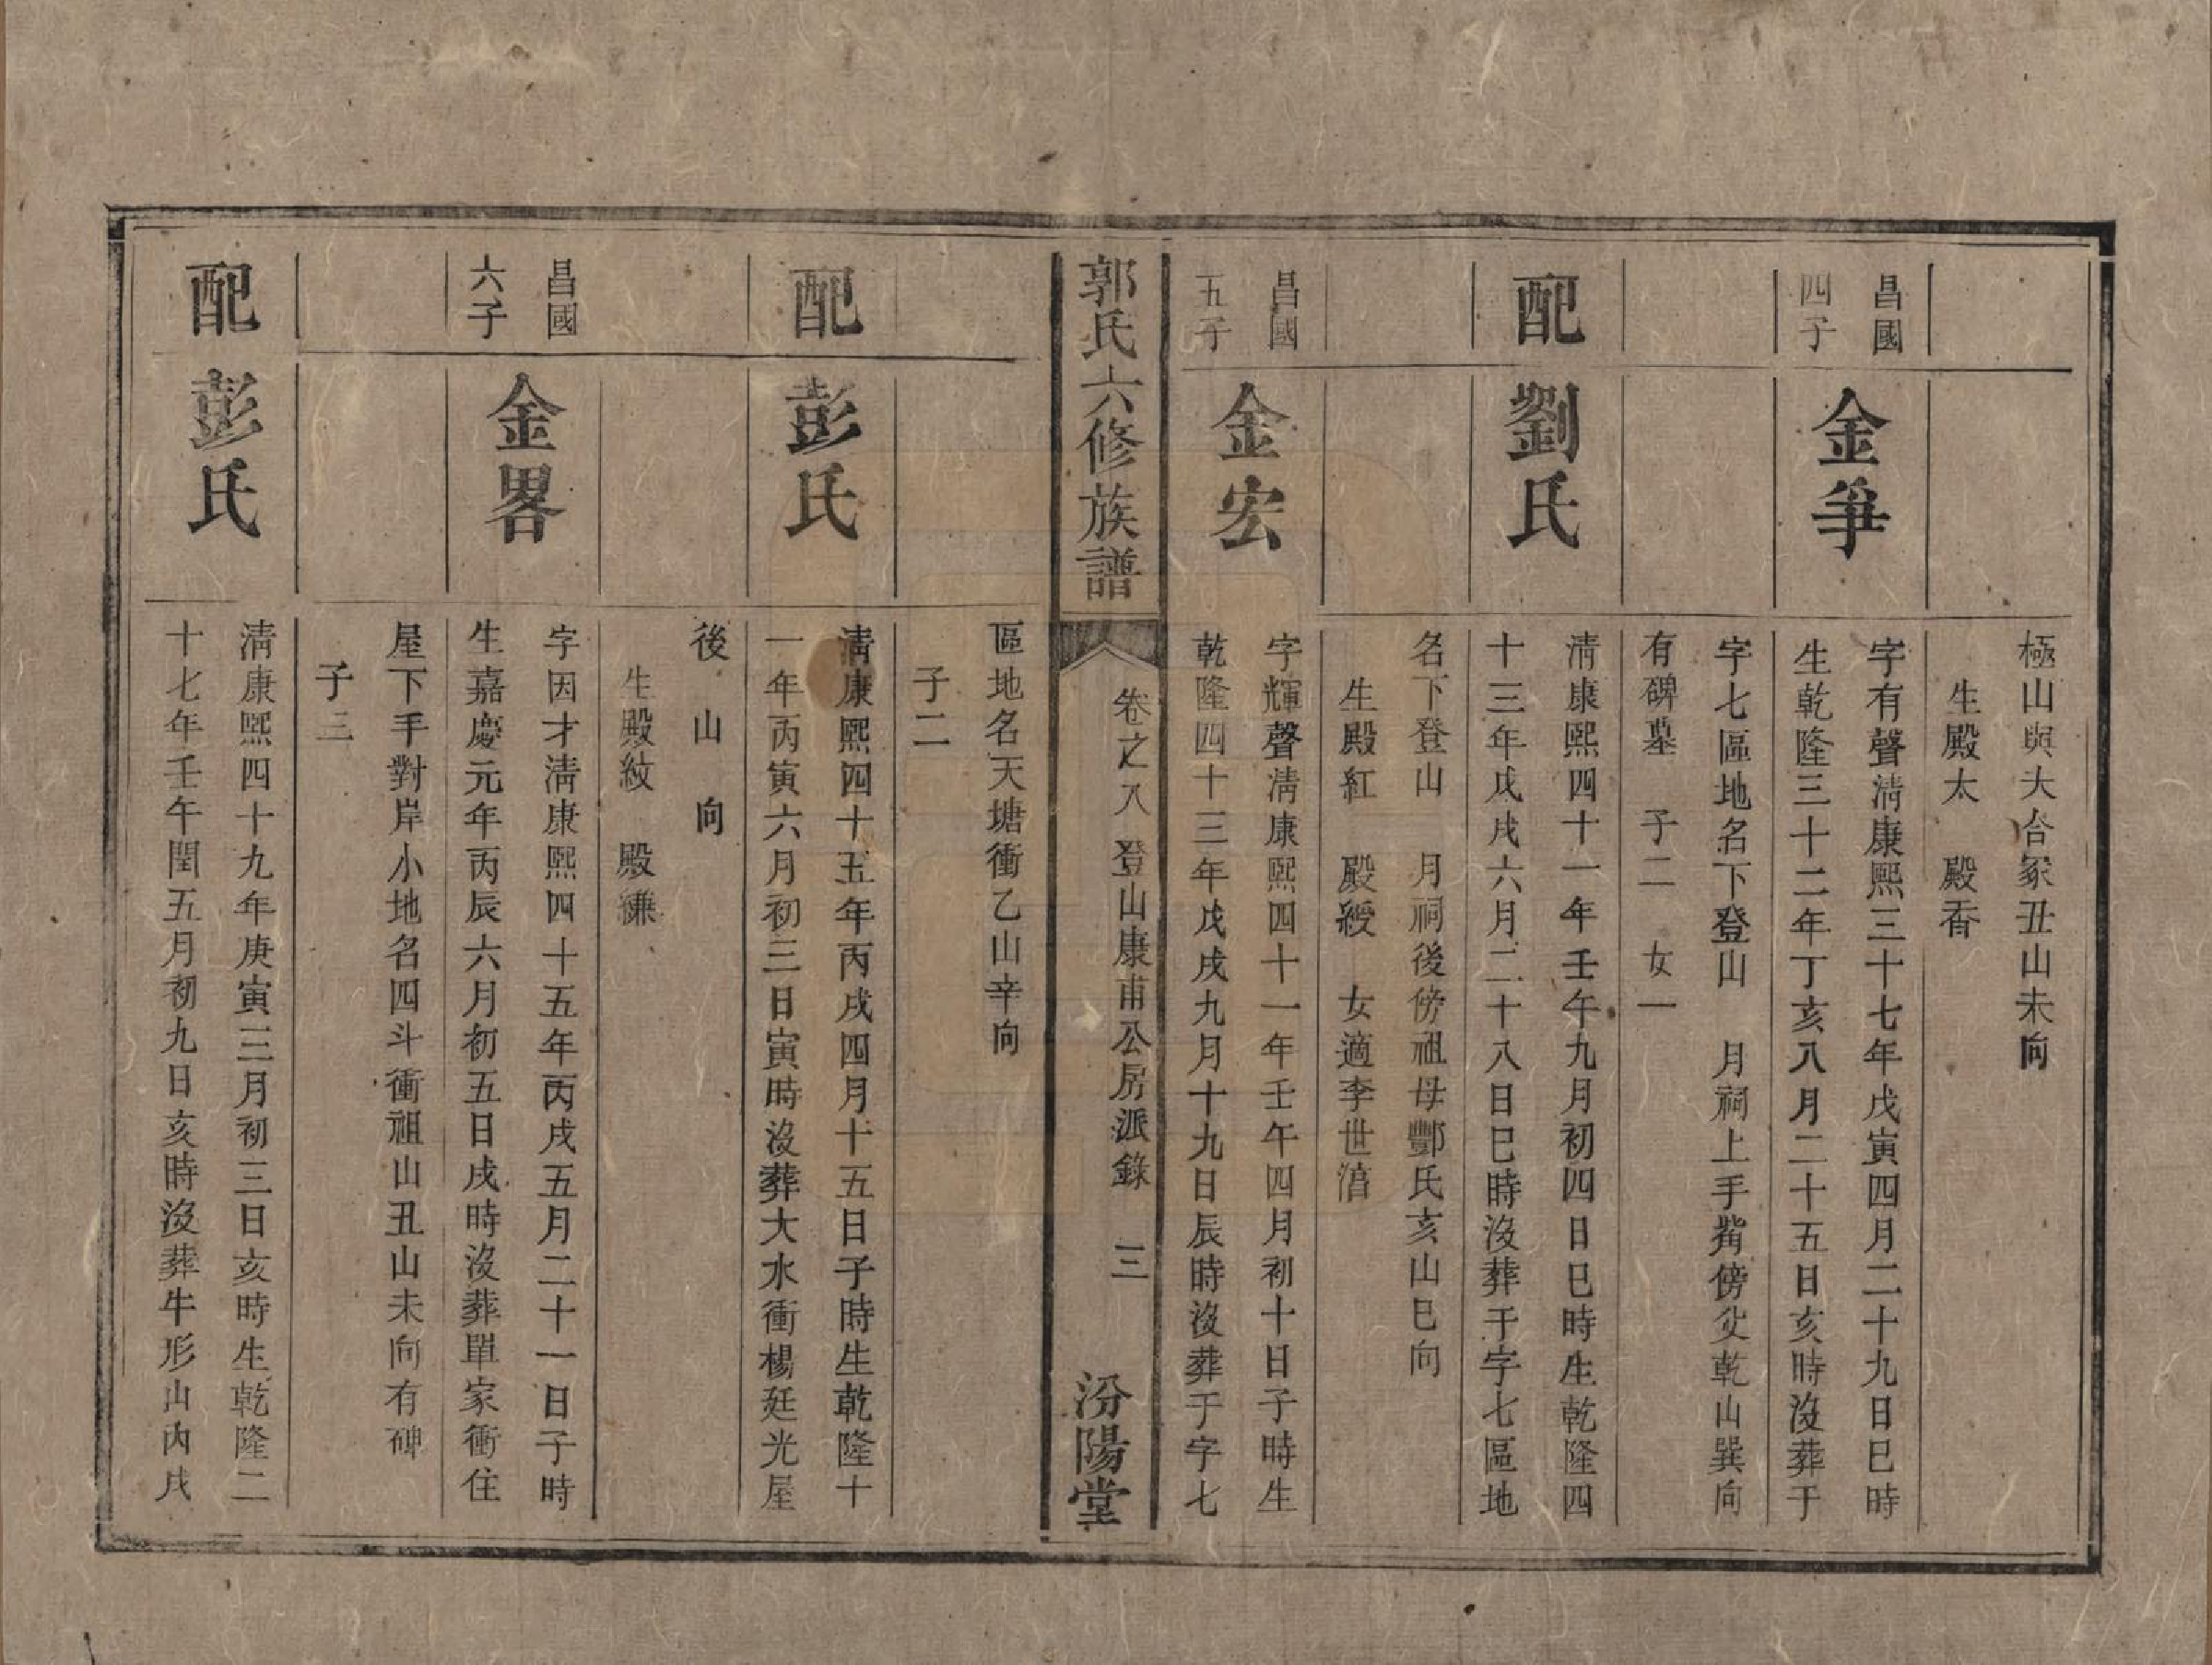 極山與大合冢丑山未向
生殿太　殿香
昌國
四子
金爭
字有聲淸康熙三十七年戊寅四月二十九日巳時
生乾隆三十二年丁亥八月二十五日亥時沒葬于
字七區地名下登山　月祠上手觜傍父乾山巽向
有碑墓　子二　女一
配
劉氏
淸康熙四十一年壬午九月初四日巳時生乾隆四
十三年戊戌六月二十八日巳時沒葬于字七區地
名下登山　月祠後傍祖母酆氏亥山巳向
生殿紅　殿綬　女適李世
昌國
五子
金宏
字輝聲淸康熙四十一年壬午四月初十日子時生
乾隆四十三年戊戌九月十九日辰時沒葬于字七
郭氏六修族譜
卷之八　登山康甫公房派錄　三
汾陽堂
區地名天塘衝乙山辛向
子二
配
彭氏
淸康熙四十五年丙戌四月十五日子時生乾隆十
一年丙寅六月初三日寅時沒葬大水衝楊廷光屋
後山向
生殿紋　殿縑
昌國
六子
金畧
字因才淸康熙四十五年丙戌五月二十一日子時
生嘉慶元年丙辰六月初五日戌時沒葬單家衝住
屋下手對岸小地名四斗衝祖山丑山未向有碑
子三
配
彭氏
淸康熙四十九年庚寅三月初三日亥時生乾隆二
十七年壬午閏五月初九日亥時沒葬牛形山內戌